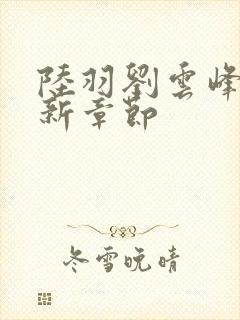 陸羽劉雲峰
新章節
冬雪晚晴